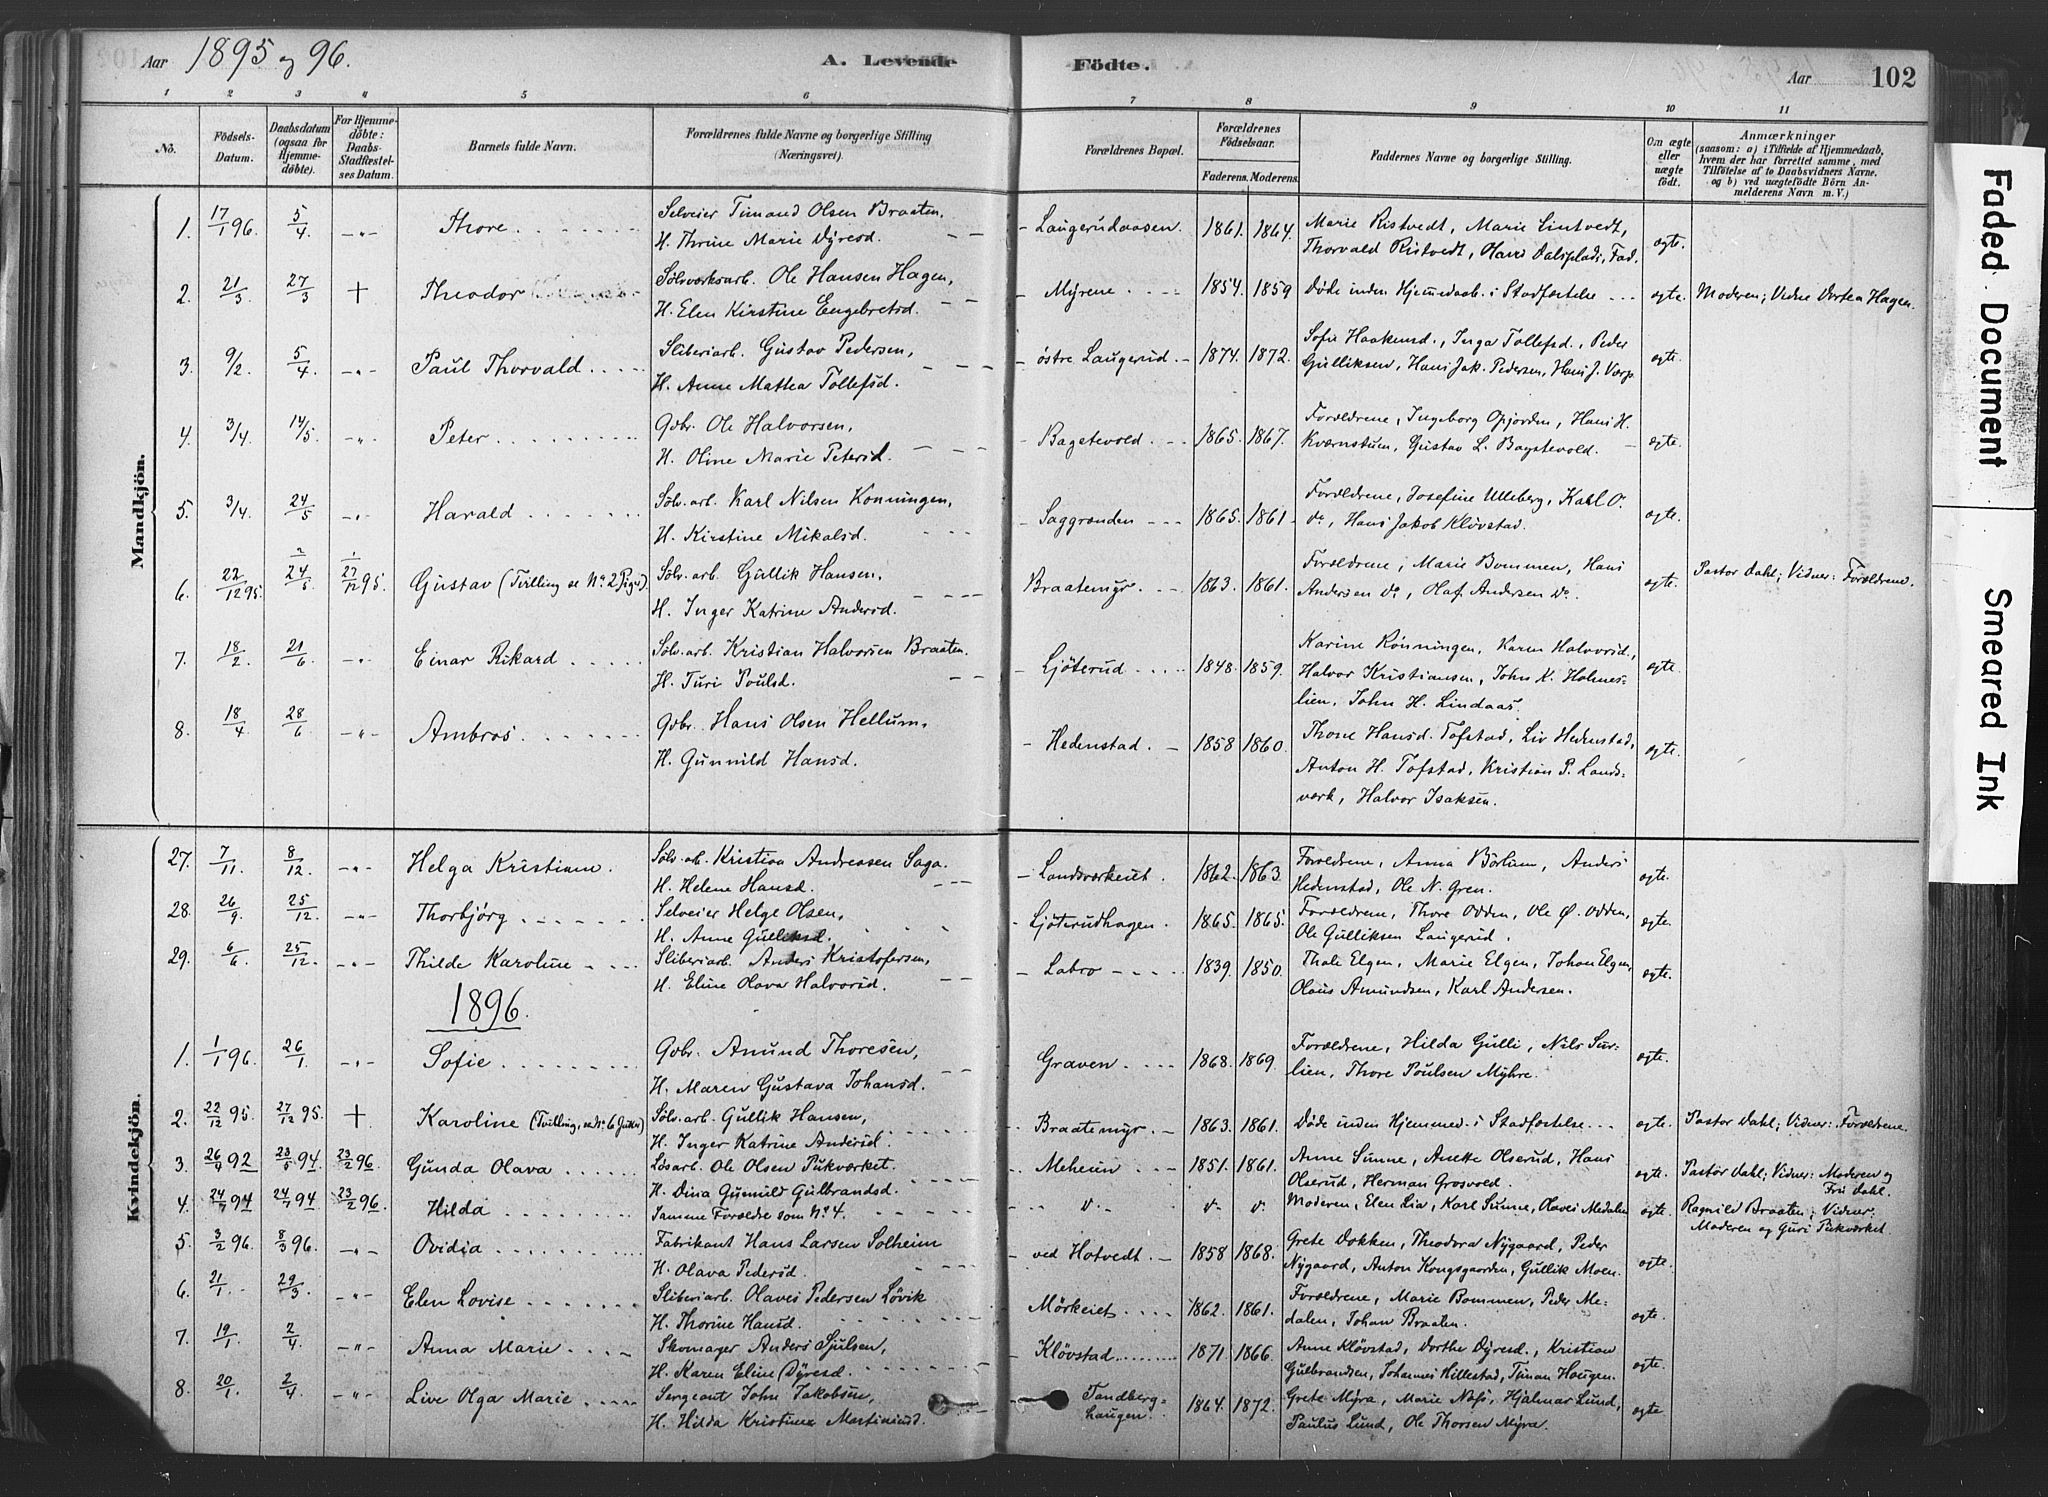 Aar 1895 og 96. A. Levende Födte. Aar 102
1 2 3 4 5 6 7 8 9 10 11
No.
Födsels-Datum.
Daabsdatum (ogsaa for Hjemme-döbte).
For Hjemme-döbte: Daabs-Stadfæstel-ses Datum.
Barnets fulde Navn.
Forældrenes fulde Navne og borgerlige Stilling (Næringsvei).
Forældrenes Bopæl.
Forældrenes Födselsaar. Faderens. Moderens.
Faddernes Navne og borgerlige Stilling.
Om ægte eller uægte födt.
Anmærkninger
(saasom: a) i Tilfælde af Hjemmedaab,
hvem der har forrettet samme, med
Tilföielse af to Daabsvidners Navne,
og b) ved uægtefödte Börn An-
melderens Navn m. V.)
Mandkjön.
1. 17/1 96. 5/4 -"- Thore Selveier Timand Olsen Braaten, Laugerudaasen 1861. 1864. Marie Ristvedt, Marie Lintvedt, ægte.
H. Thrine Marie Dyresd. Thorvald Ristvedt, Hans Dalsplads, Fad.
2. 21/3. 27/3 + Theodor Sølvverksarb. Ole Hansen Hagen, Myrene 1854. 1859 Døde inden Hjemmedaab. i Stadfæstelse ægte. Moderen; Vidne Dortea Hagen.
H. Elen Kirstine Engebretsd.
3. 9/2. 5/4 -"- Paul Thorvald Sliberiarb. Gustav Pedersen, østre Laugerud. 1874. 1872. Sofie Haakensd., Inga Tollefsd., Peder ægte.
H. Anne Mattea Tollefsd. Gulliksen, Hans Jak. Pedersen, Hans J. Værp
4. 3/4 14/5. -"- Peter Gbr. Ole Halvorsen, Bagstevold 1865. 1867. Forældrene, Ingeborg Opjorden, Hans H. ægte.
H. Oline Marie Petersd. Kværnstuen, Gustav L. Bagstevold.
5. 3/4. 24/5 -"- Harald Sølv.arb. Karl Nilsen Konningen, Saggrenden 1865. 1861 Forældrene, Josefine Ulleberg, Kahl O. ægte.
H. Kirstine Mikalsd. do, Hans Jakob Kløvstad.
6. 22/12 95. 24/5 27/12 95. Gustav (Tvilling se No 2 Pige). Sølv.arb. Gullik Hansen, Braatemyr 1863. 1861. Forældrene, Marie Bommen, Hans ægte. Pastor Dahl; Vidner: Forældrene.
H. Inger Katrine Andersd. Andersen do, Olaf Andersen do.
7. 18/2. 21/6 -"- Einar Rikard Sølv.arb. Kristian Halvorsen Braaten. Ljøterud 1848. 1859. Karine Rønningen, Karen Halvorsd., ægte.
H. Turi Poulsd. Halvor Kristiansen, John K. Holmes-
lien, John H. Lindaas.
8. 18/4 28/6 -"- Ambros Gbr. Hans Olsen Hellum, Hedenstad. 1858 1860. Thone Hansd. Tofstad, Liv Hedenstad, ægte.
H. Gunnild Hansd. Anton H. Tofstad, Kristian P. Lands-
værk, Halvor Isaksen.
Kvindekjön.
27. 7/11. 8/12 -"- Helga Kristiane. Sølv.arb. Kristian Andreasen Saga. Landsværkeiet. 1862. 1863. Forældrene, Anna Børlum, Anders ægte.
H. Helene Hansd. Hedenstad, Ole N. Gren.
28. 26/9. 25/12. -"- Thorbjørg Selveier Helge Olsen, Ljøterudhagen. 1865. 1865. Forældrene, Thore Odden, Ole Ø. Odden, ægte.
H. Anne Gulliksd. Ole Gulliksen Laugerud.
29. 6/6 25/12. -"- Thilde Karoline Sliberiarb. Anders Kristofersen, Labro 1839. 1850. Thale Elgen, Marie Elgen, Johan Elgen, ægte.
H. Eline Olava Halvorsd. Olaus Amundsen, Karl Andersen.
1896.
1. 1/1 96. 26/1 -"- Sofie Gbr. Amund Thoresen, Graven 1868. 1869. Forældrene, Hilda Gulli, Nils Sur- ægte.
H. Maren Gustava Johansd. lien, Thore Poulsen Myhre.
2. 22/12 95. 27/12 95. + Karoline (Tvilling, se No 6 Gutter) Sølv.arb. Gullik Hansen, Braatemyr 1863. 1861. Døde inden Hjemmed. i Stadfæstelse ægte. Pastor Dahl; Vidner: Forældrene.
H. Inger Katrine Andersd.
3. 26/9 92 23/5 94 23/2 96. Gunda Olava Løsarb. Ole Olsen Pukværket. Meheien 1851. 1861. Anne Sunne, Anette Olserud, Hans ægte. Pastor Dahl; Vidner: Moderen og
H. Dina Gunnild Gulbrandsd. Olserud, Herman Grosvold. Fru Dahl.
4. 24/7 94 24/7 94 23/2 96. Hilda Samme Forældre som No 4. Moderen, Elen Lia, Karl Sunne, Olaves Medalen ægte. Ragnild Braaten; Vidner:
Moderen og Guri Pukværket
5. 3/2 96. 8/3 96. -"- Ovidia Fabrikant Hans Larsen Solheim ved Hotvedt. 1858 1868. Grete Dokken, Theodora Nygaard, Peder ægte.
H. Olava Pedersd. Nygaard, Anton Kongsgaarden, Gullik Moen.
6. 21/1. 29/3 -"- Elen Lovise Sliberiarb. Olaves Pedersen Løvik Mørkeiet. 1862. 1861. Forældrene, Marie Bommen, Peder Me- ægte.
H. Thorine Hansd. dalen, Johan Braaten.
7. 19/1. 2/4 -"- Anna Marie Skomager Anders Sjulsen, Kløvstad 1871. 1866. Anne Kløvstad, Dorthe Dyresd., Kristian ægte.
H. Karen Eline Dyresd. Gulbrandsen, Johannes Hillestad, Timan Haugen.
8. 20/1. 2/4 -"- Live Olga Marie Sergeant John Jakobsen, Tandberg-haugen. 1864. 1872. Grete Myra, Marie Næss, Hjalmar Lund, ægte
H. Hilda Kristine Martiniusd. Paulus Lund, Ole Thorsen Myra.
Faded Document
Smeared Ink